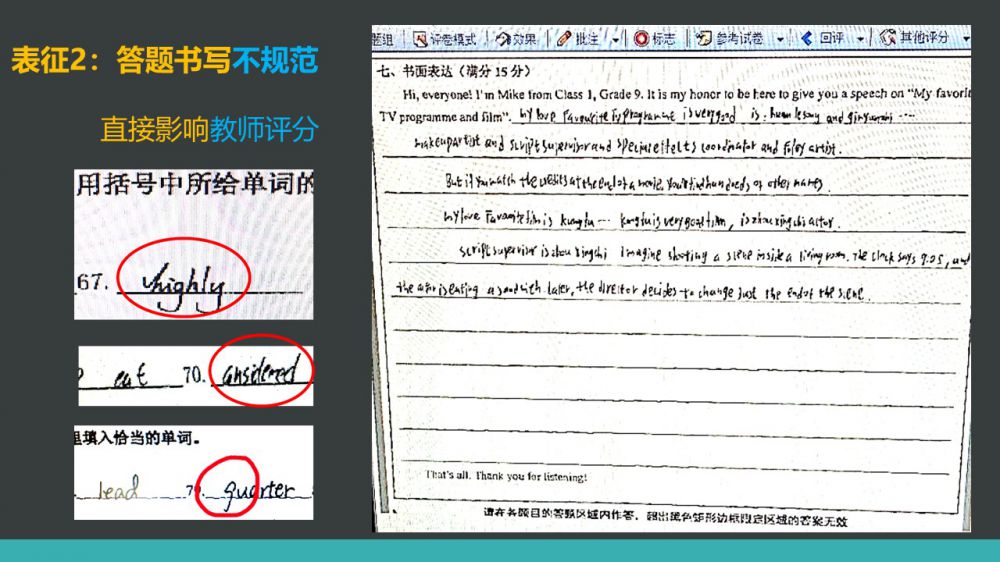 表征2：答题书写不规范
直接影响教师评分
用括号中所给单词的
67. highly
eat 70.
填入恰当的单词。
lead quarter
题组 评卷模式 效果 批注 标志 参考试卷 回评 其他评分
七、书面表达（满分 15 分）
Hi, everyone! I'm Mike from Class 1, Grade 9. It is my honor to be here to give you a speech on "My favorit
TV programme and film". My love Favourite TV programme is very good is
and script supervisor and coordinator and foley artist.
But if you watch the credits at the end of a movie, You'll find hundreds of other names.
My love Favorite film is kungfu ... kungfu is very good film, is zhou xing chi actor.
script supervisor is zhou xing chi Imagine shooting a scene inside a living room. The clock says 9:05, and
the actor is eating a sandwich. later, the director decides to change just the end of the scene.
That's all. Thank you for listening!
请在各题目的答题区域内作答，超出黑色矩形边框限定区域的答案无效